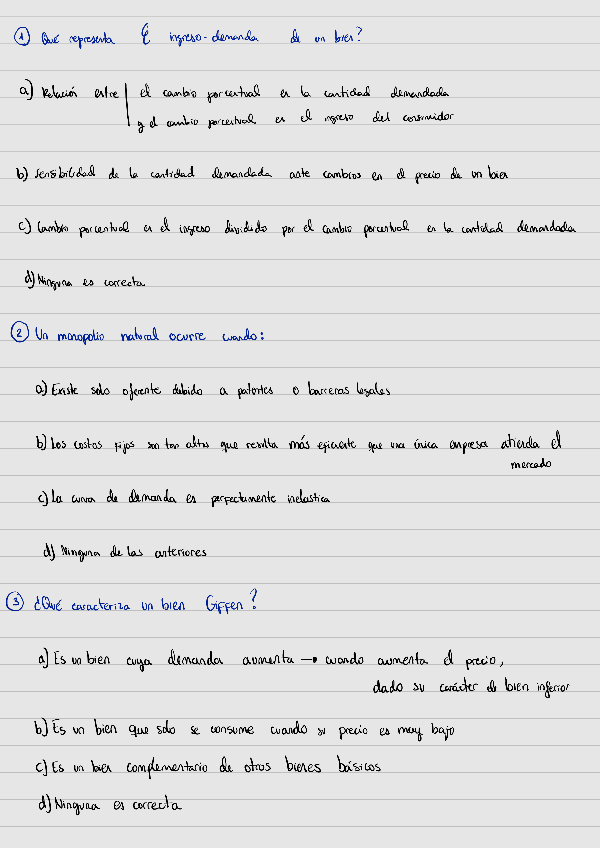 ① Qué representa Ɛ ingreso-demanda de un bien?
a) Relación entre | el cambio porcentual en la cantidad demandada
y el cambio porcentual en el ingreso del consumidor
b) Sensibilidad de la cantidad demandada ante cambios en el precio de un bien
c) Cambio porcentual en el ingreso dividido por el cambio porcentual en la cantidad demandada
d) Ninguna es correcta
② Un monopolio natural ocurre cuando:
a) Existe solo oferente debido a patentes o barreras legales
b) Los costos fijos son tan altos que resulta más eficiente que una única empresa atienda el
mercado
c) La curva de demanda es perfectamente inelastica
d) Ninguna de las anteriores
③ ¿Qué caracteriza un bien Giffen?
a) Es un bien cuya demanda aumenta → cuando aumenta el precio,
dado su carácter de bien inferior
b) Es un bien que solo se consume cuando su precio es muy bajo
c) Es un bien complementario de otros bienes básicos
d) Ninguna es correcta